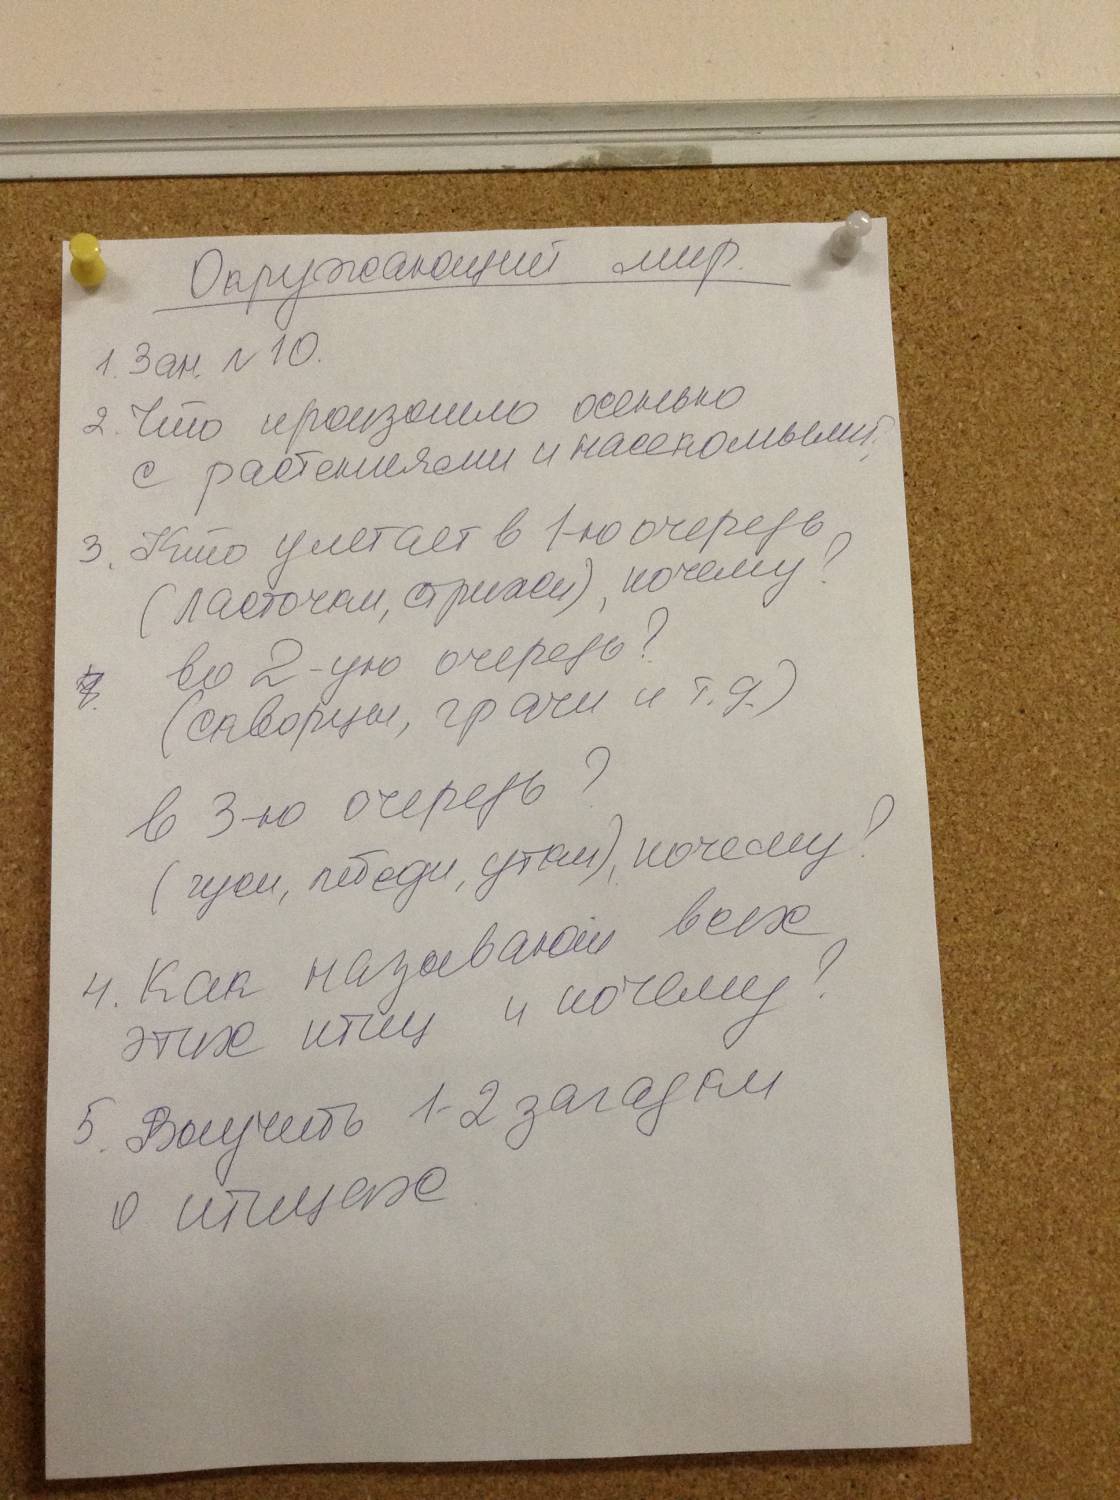 Окружающий мир.
1. Зан. №10.
2. Что произошло осенью
с растениями и насекомыми?
3. Кто улетает в 1-ю очередь
(ласточки, стрижи), почему?
во 2-ую очередь?
(скворцы, грачи и т.д.)
в 3-ю очередь?
(гуси, лебеди, утки), почему?
4. Как называют всех
этих птиц и почему?
5. Выучить 1-2 загадки
о птицах